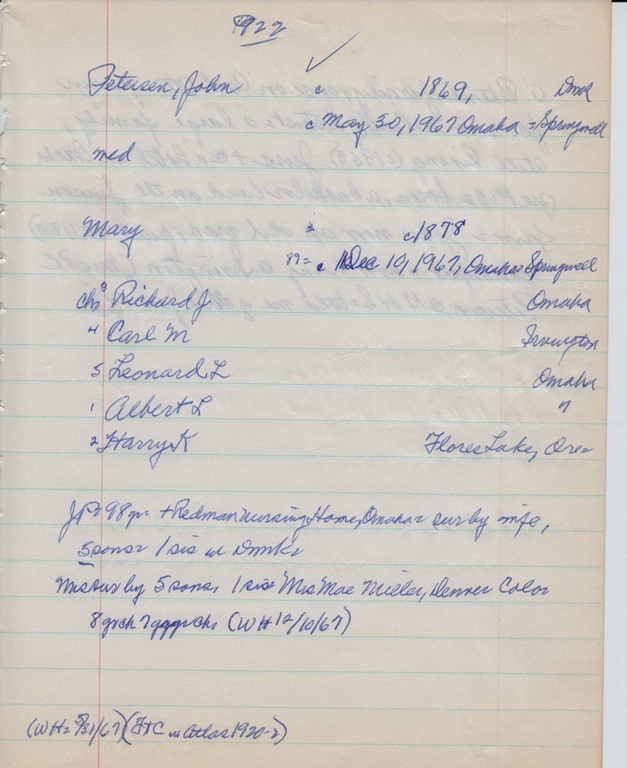 1922 ✓
Petersen, John c 1869, Dmk
c May 30, 1967 Omaha = Springwell
med
Mary c1878
89= c Dec 10, 1967, Omaha= Springwell
chs 3 Richard J Omaha
4 Carl M Irvington
5 Leonard L Omaha
1 Albert L "
2 Harry K Flores Lake, Ore=
JP= 98 yr= + Redman Nursing Home, Omaha= sur by wife,
5 sons= 1 sis in Dmk=
Mrs sur by 5 sons, 1 sis= Mrs Mae Miller, Denver Color
8 grch 7 ggrch (WH 12/10/67)
(WH= 5/31/67) (FTC in Atlas 1920-2)